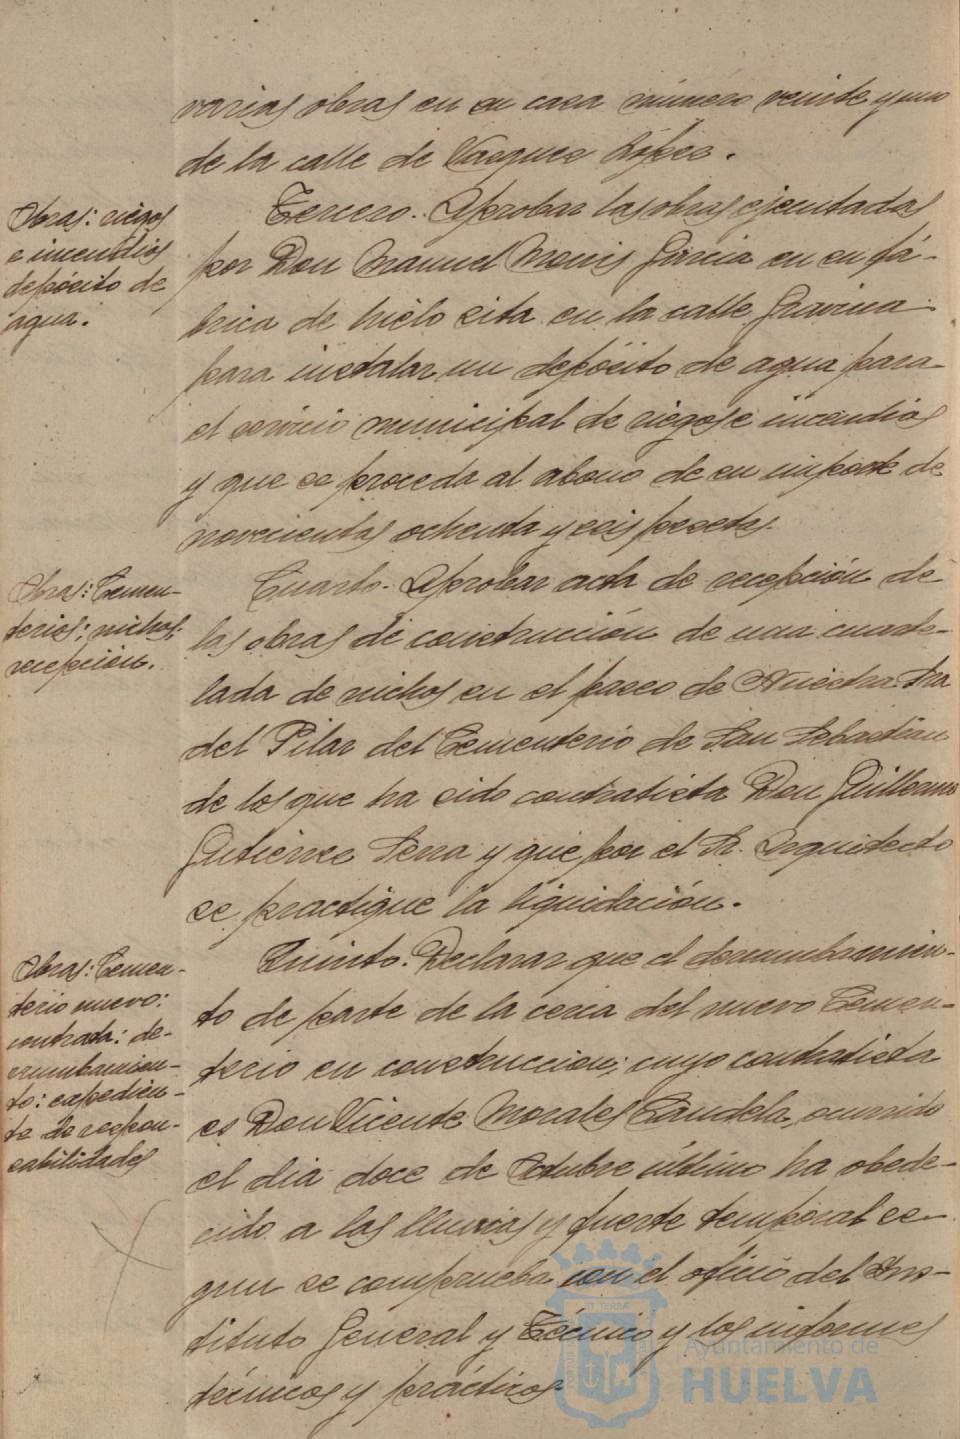 varias obras en su casa número veinte y uno
de la calle de Vazquez López.
Obras: riegos
e incendios
depósito de
agua.
Tercero. Aprobar las obras ejecutadas
por Don Manuel Monis García en su fá-
brica de hielo sita en la calle Gravina
para instalar un depósito de agua para
el servicio municipal de riegos e incendios
y que se proceda al abono de su importe de
novecientas ochenta y seis pesetas.
Obras: Cemen-
terios; nichos;
recepción.
Cuarto. Aprobar acta de recepción de
las obras de construcción de una cuarte-
lada de nichos en el paseo de Nuestra Sra
del Pilar del Cementerio de San Sebastian
de los que ha sido contratista Don Guillermo
Gutierrez Serra y que por el Sr. Arquitecto
se practique la liquidación.
Obras: Cemen-
terio nuevo:
contrata: de-
rrumbamien-
to: expedien-
te de respon-
sabilidades
Quinto. Declarar que el derrumbamien-
to de parte de la cerca del nuevo Cemen-
terio en construccion; cuyo contratista
es Don Vicente Morales Candela, ocurrido
el dia doce de Octubre último ha obede-
cido a las lluvias y fuerte temporal se-
gun se comprueba con el oficio del Ins-
tituto General y Técnico y los informes
técnicos y prácticos
Ayuntamiento de
HUELVA